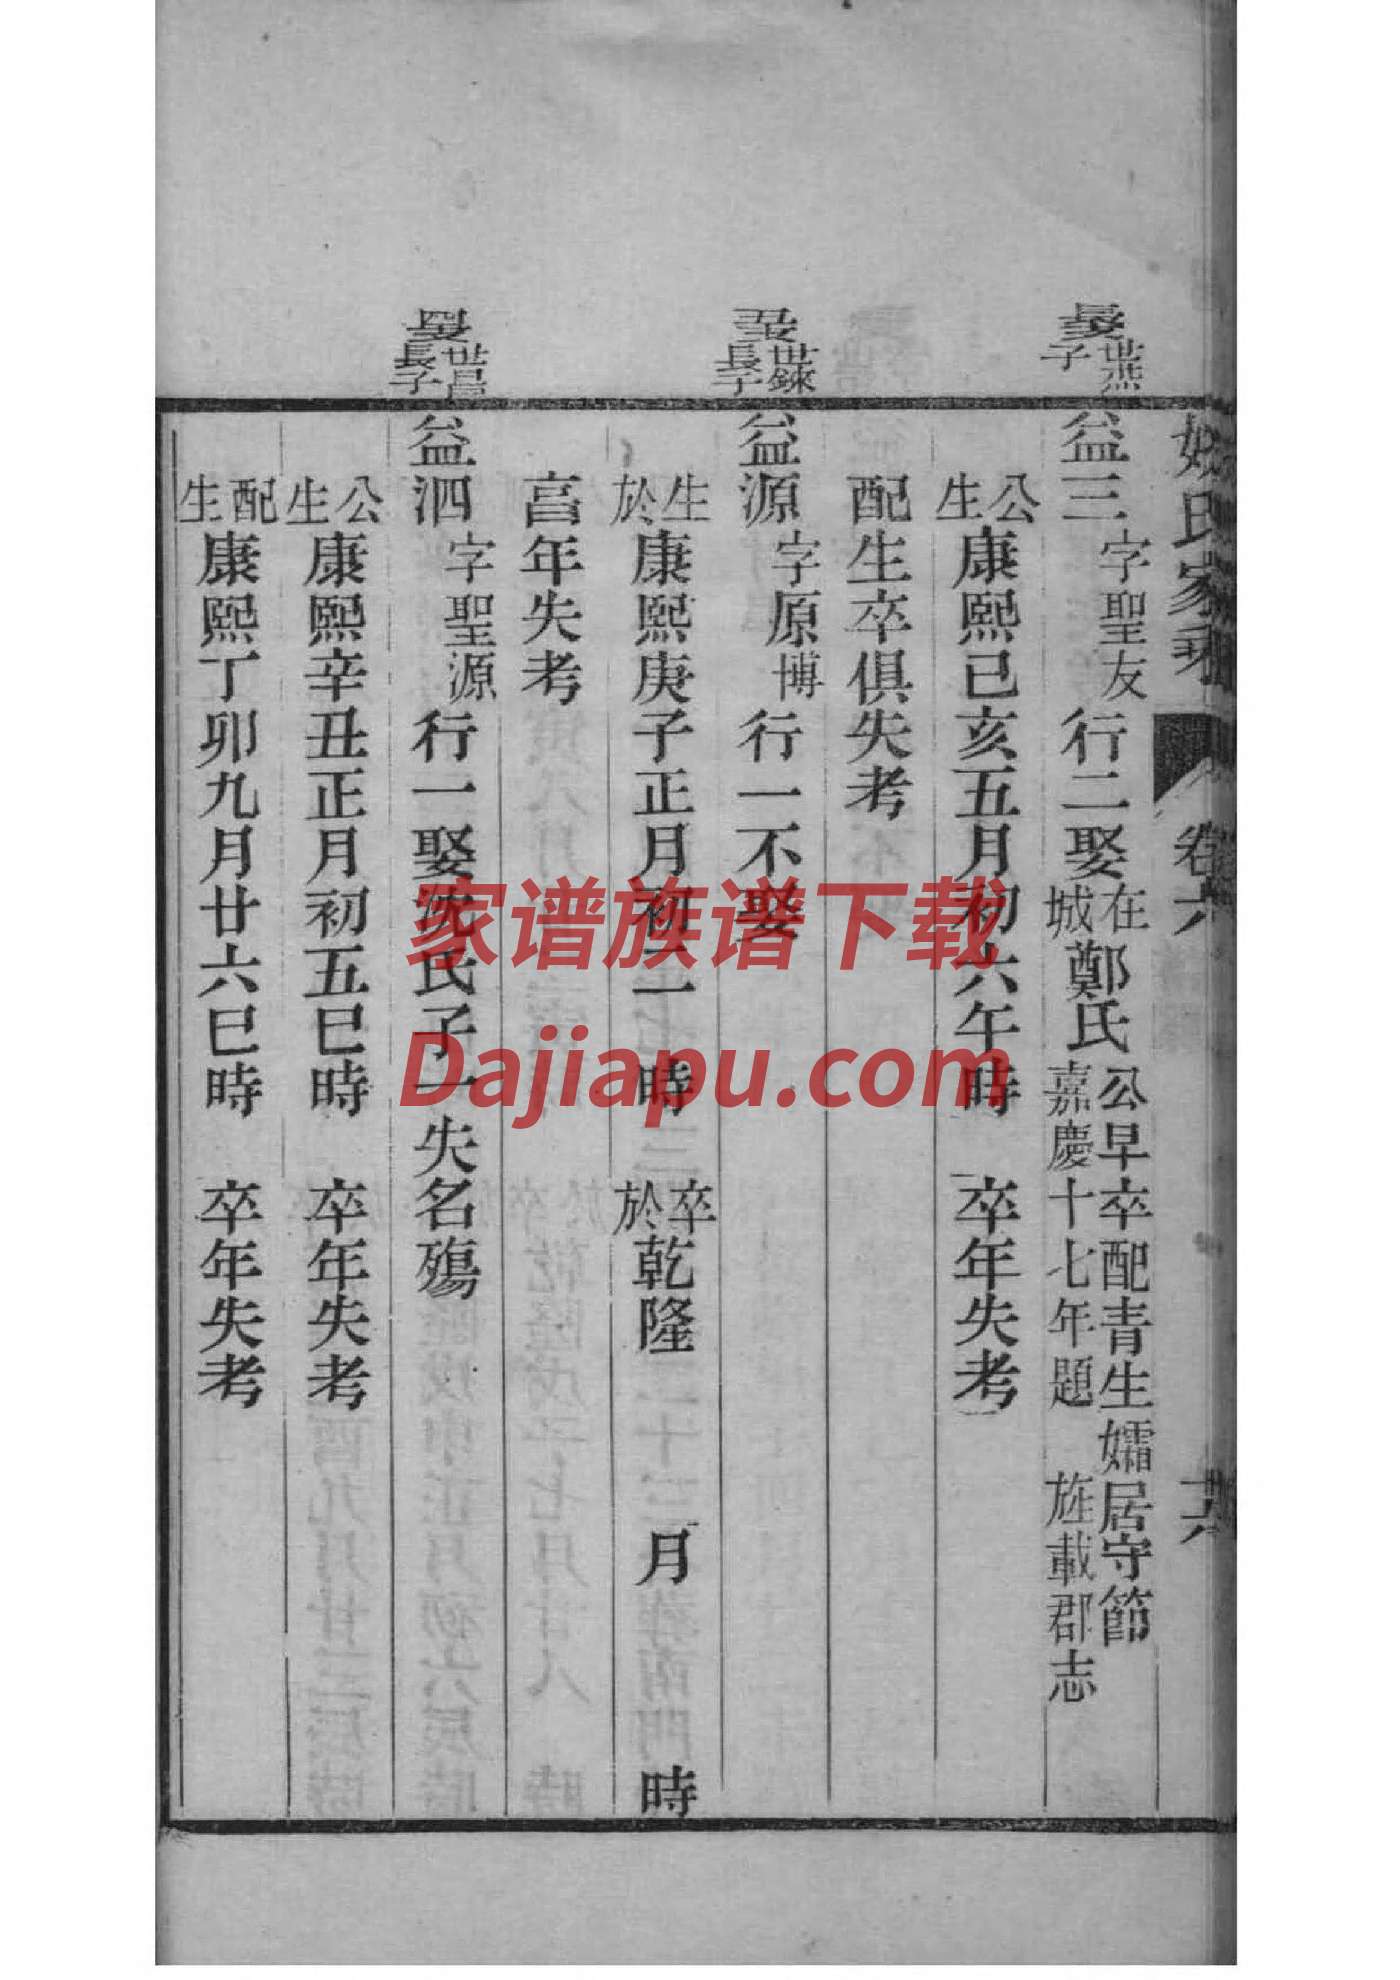 氏家乘 卷六 十六
世燕
子
益三 字聖友 行二娶 在城 鄭氏 公早卒配青生孀居守節 嘉慶十七年題 旌載郡志
公生 康熙己亥五月初六午時 卒年失考
配生卒俱失考
世錸
長子
益源 字原博 行一不娶
生於 康熙庚子正月初二 時 卒於 乾隆 月 時
亯年失考
世昌
長子
益泗 字聖源 行一娶沈氏子一失名殤
公生 康熙辛丑正月初五巳時 卒年失考
配生 康熙丁卯九月廿六巳時 卒年失考
家谱族谱下载
Dajiapu.com